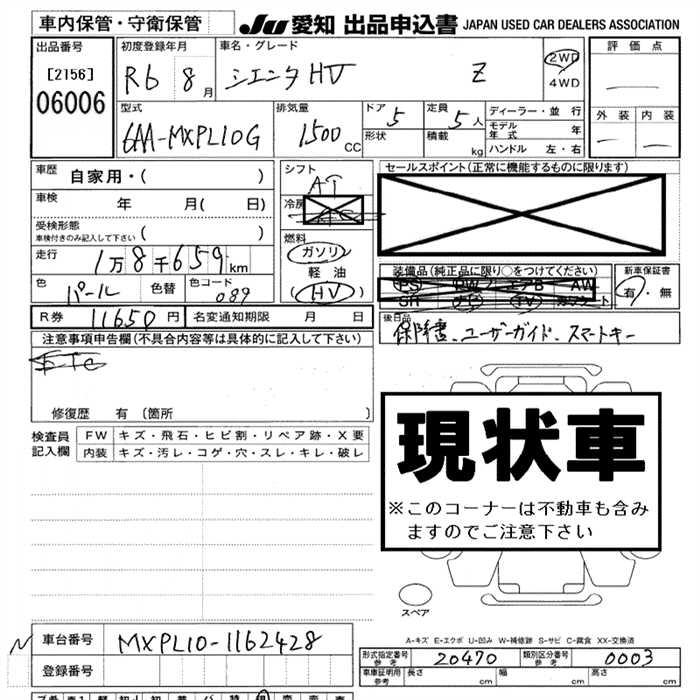 車内保管・守衛保管
JU 愛知 出品申込書 JAPAN USED CAR DEALERS ASSOCIATION
出品番号
[2156]
06006
初度登録年月
R6 8月
車名・グレード
シエンタHV Z
2WD
4WD
評価点
外装 内装
型式
6AA-MXPL10G
排気量
1500CC
ドア 5
形状
定員 5人
積載 kg
ディーラー・並行
モデル年式 年
ハンドル 左・右
車歴 自家用・( )
車検 年 月( 日)
受検形態
車検付きのみ記入して下さい ( )
走行 1万8千659km
色 パール 色替 色コード 089
シフト
AT
冷房
燃料
ガソリン
軽油
(HV)
セールスポイント(正常に機能するものに限ります)
装備品(純正品に限り○をつけてください)
PS PW エアB AW
SR ナビ TV カワシート
新車保証書
有・無
R券 11650円 名変通知期限 月 日
後日品
保証書、ユーザーガイド、スマートキー
注意事項申告欄(不具合内容等は具体的に記入して下さい)
ETC
修復歴 有 [箇所 ]
検査員
記入欄
FW キズ・飛石・ヒビ割・リペア跡・X要
内装 キズ・汚レ・コゲ・穴・スレ・キレ・破レ
現状車
※このコーナーは不動車も含み
ますのでご注意下さい
スペア
A-キズ E-エクボ U-凹み W-補修跡 S-サビ C-腐食 XX-交換済
N 車台番号 MXPL10-1162428
登録番号
形式指定番号
参考
20470
類別区分番号
参考
0003
車庫証明用
参考
長さ cm 幅 cm 高さ cm